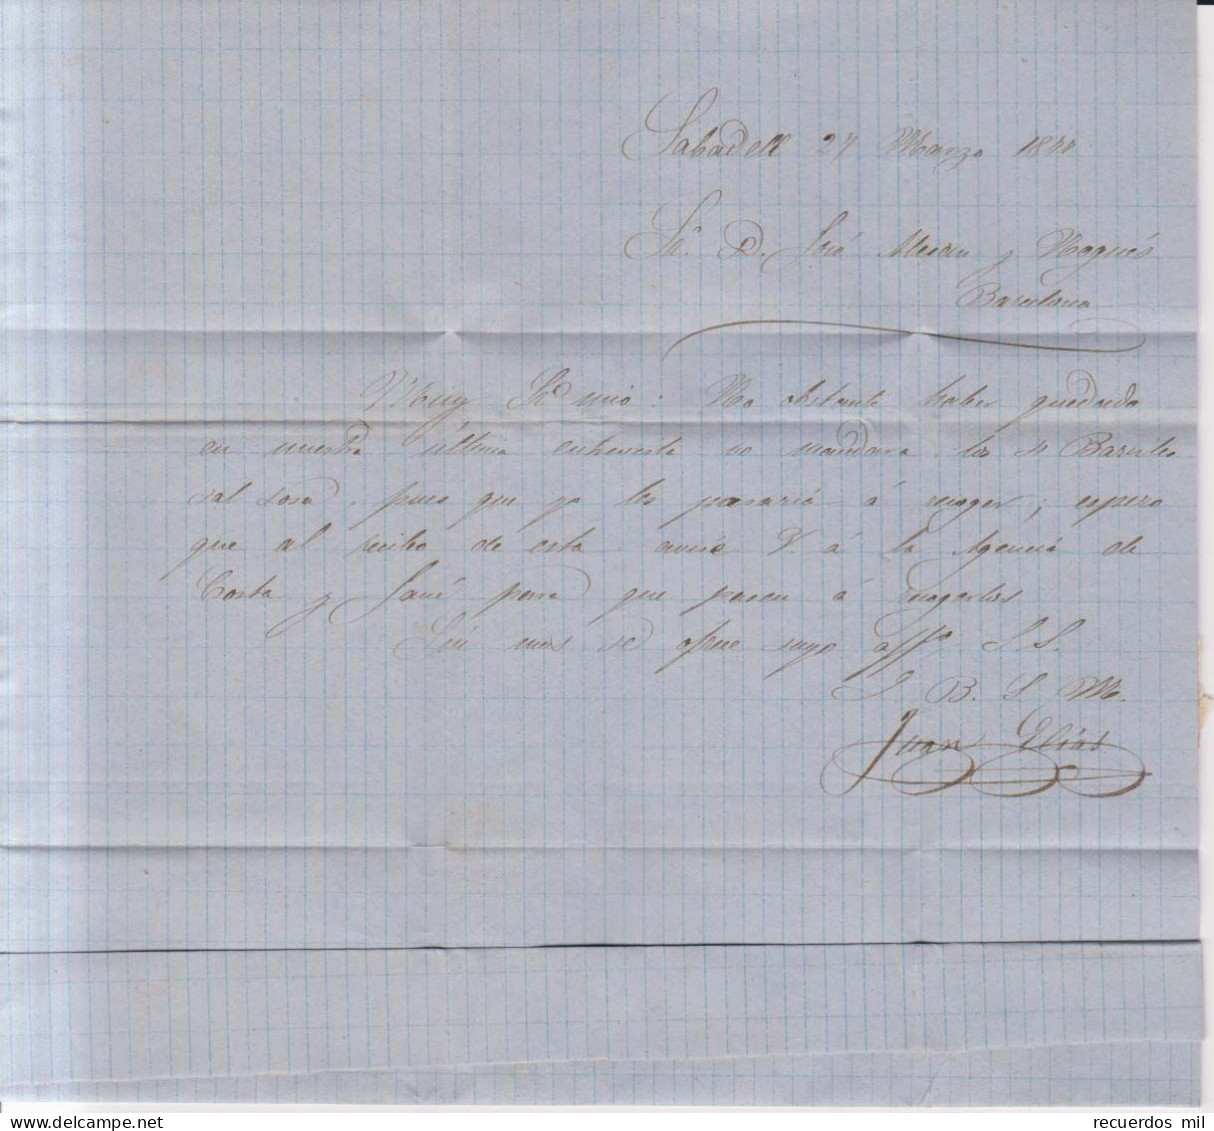 Sabadell 27 Marzo 1877
Sr. D. José y Nogués
Barcelona
Muy Sr. mio: No obstante haber quedado
en nuestra última entrevista no mandara los
sal sosa, pues que yo los pasaria á recoger; espero
que al recibo de esta avise V. á la Agencia de
Costa y para que pasen á recogerlos
Sin mas se ofrece suyo affmo S. S.
Q. B. S. M.
Juan Elias
recuerdos mil